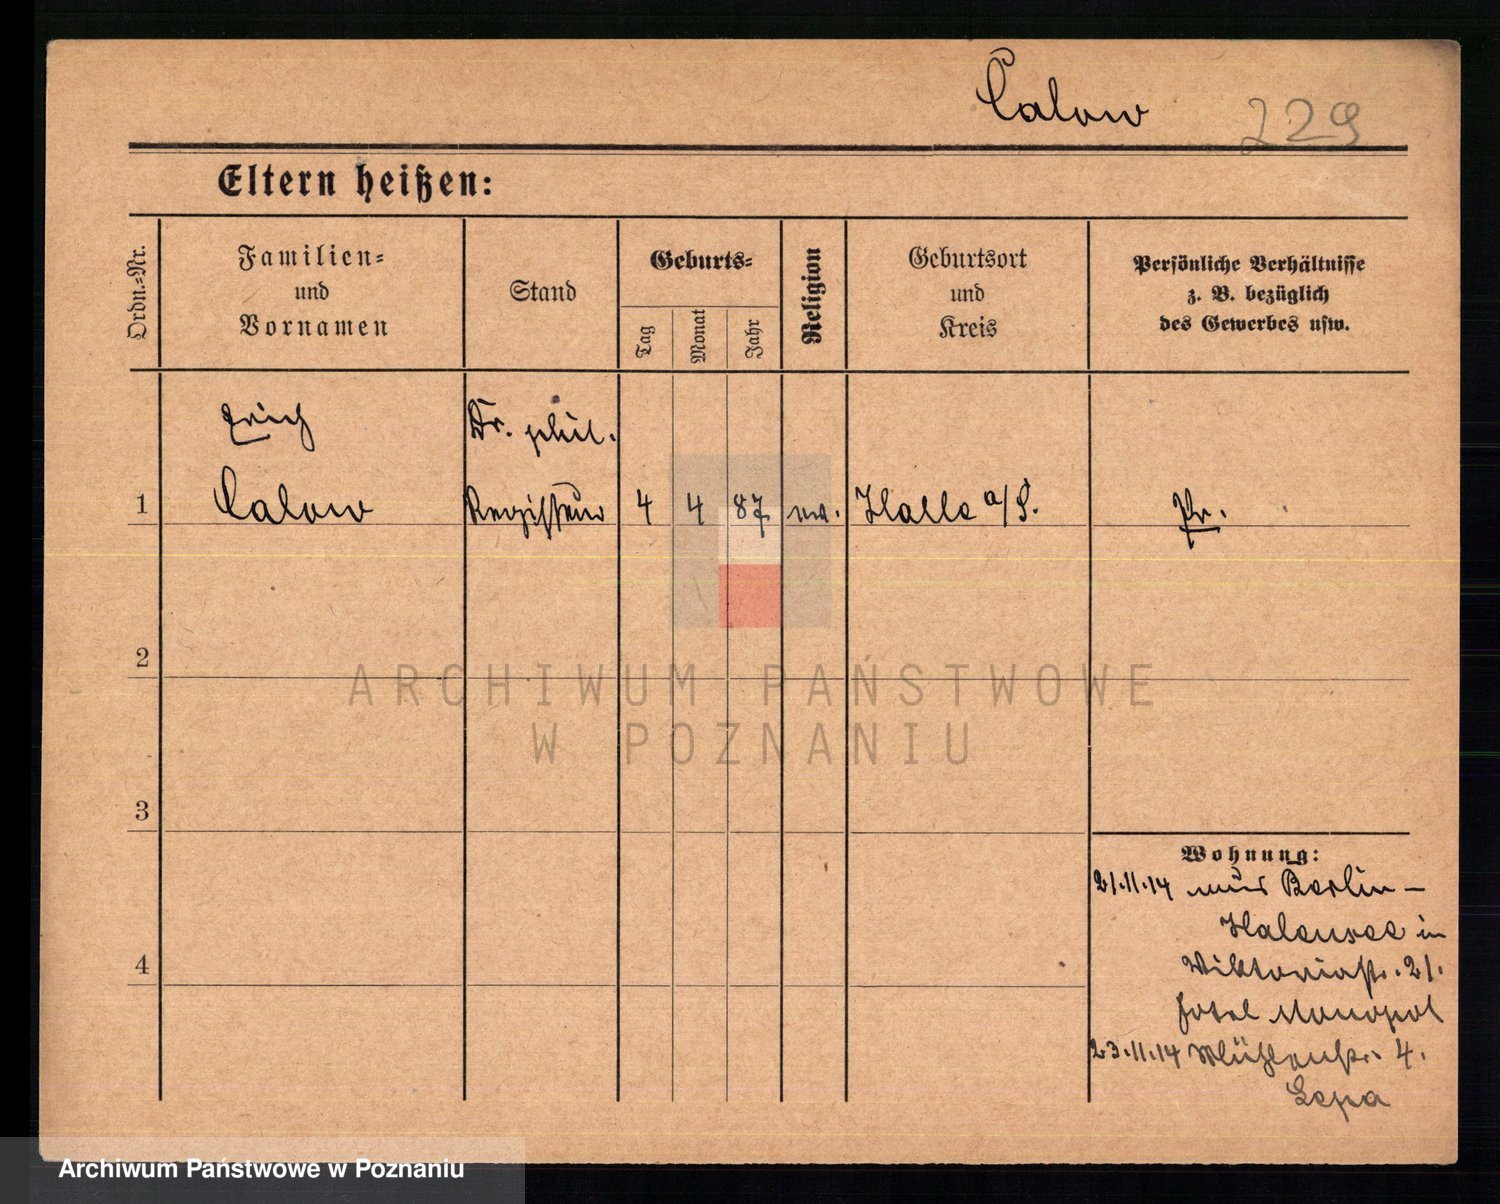 Calow 229
Eltern heißen:
Ordn.-Nr.
Familien-
und
Vornamen
Stand
Geburts-
Tag
Monat
Jahr
Religion
Geburtsort
und
Kreis
Persönliche Verhältnisse
z. B. bezüglich
des Gewerbes usw.
Erich Dr. phil.
1 Calow 4 4 87 Halle a/S. Pr.
2
3
4
ARCHIWUM PAŃSTWOWE
W POZNANIU
Wohnung:
21.11.14 Berlin-
Halensee in
Viktoriastr. 21.
Hotel Monopol
23.11.14 Mühlenstr. 4.
Archiwum Państwowe w Poznaniu